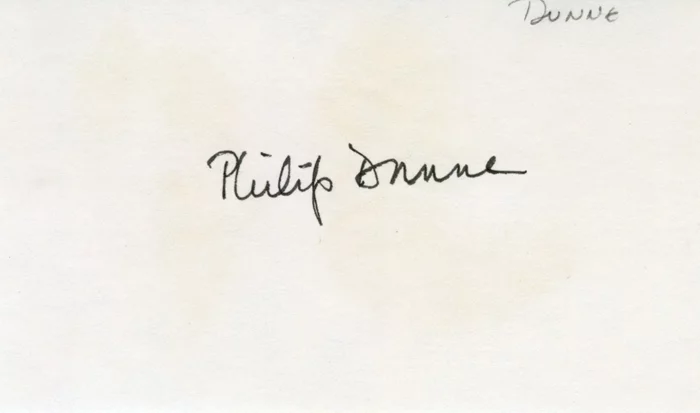 DUNNE
Philip Dunne